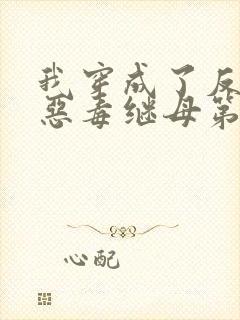 我穿成了反
恶毒继母第
心配